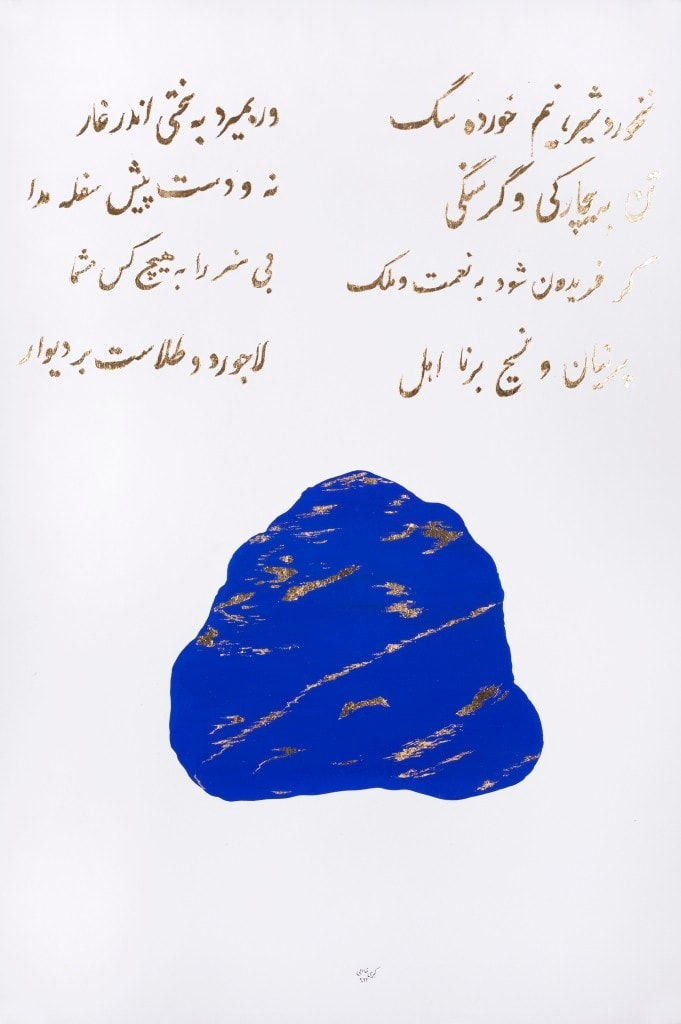 نخورد شیر، نیم خورده سگ ور بمیرد به سختی اندر غار
تن به بیچارگی و گرسنگی نه و دست پیش سفله مدا
گر فریدون شود به نعمت و ملک بی هنر را به هیچ کس مشما
پرنیان و نسیج برنا اهل لاجورد و طلاست بر دیوار